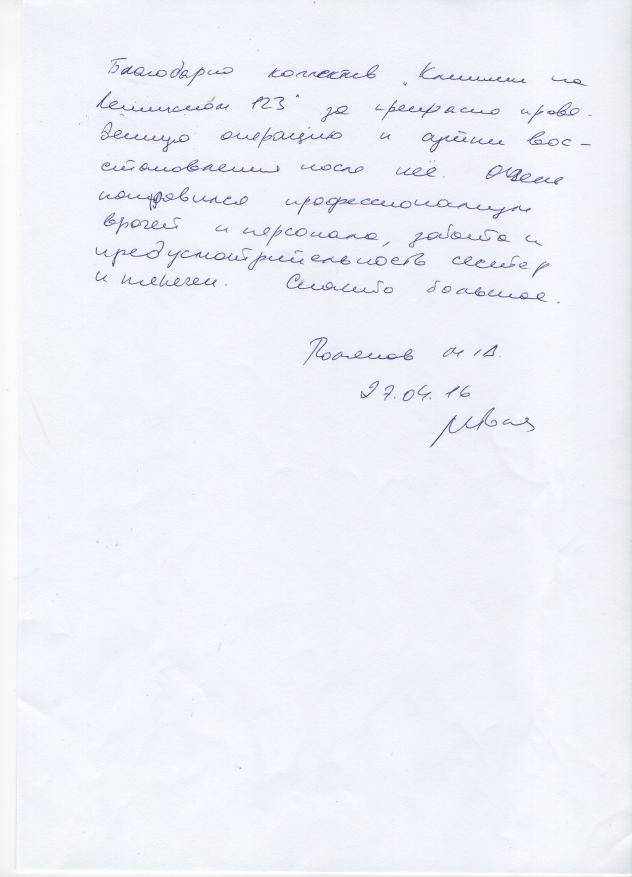 Благодарю коллектив "Клиники на
Ленинском 123" за прекрасно прове-
денную операцию и вос-
становления после неё. Очень
понравился профессионализм
врачей и персонала, забота и
предусмотрительность сестер
и нянечек. Спасибо большое.
27.04.16